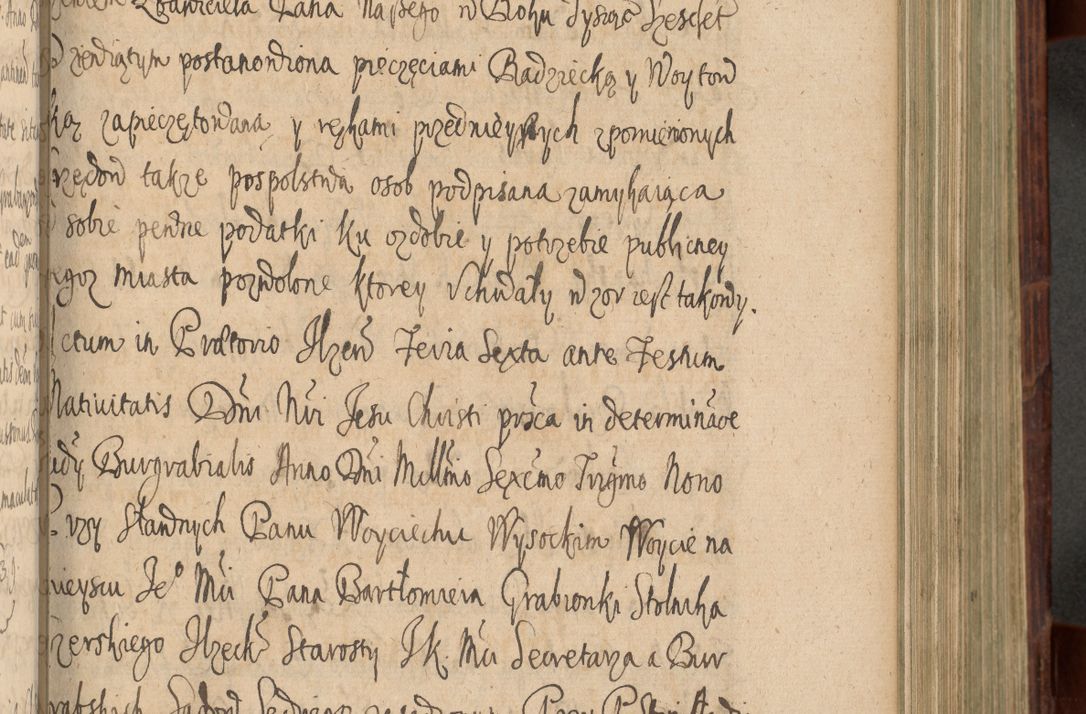 Zbawiciela Pana naszego w Bogu Tysiąc Szescset
postanowiona pieczęciami Radziecką y Woytow
ką zapieczętowana y rękami przednieyszych zpomienionych
rzędow takze pospolstwa osob podpisana zamykaiąca
sobie pewne podatki ku ozdobie y potrzebie publicney
egoz miasta pozwolone ktorey Uchwały wzor iest takowy.
ctum in Prætorio Ilzen̄ Feria Sexta ante Festum
Nativitatis Dn̄i Nr̄i Jesu Christi prca in determinãoe
Burgrabialis Anno Dn̄i Mill̄mo Sexc̄mo Triḡmo Nono
Przy Sławnych Panu Woyciechu Wysockim Woycie na
mieyscu Je⁰ Mći Pana Bartłomieia Grabionki Stolnika
zerskiego Ilzeck⁰ Starosty J.K. Mći Secretarza a Bur
grabskich